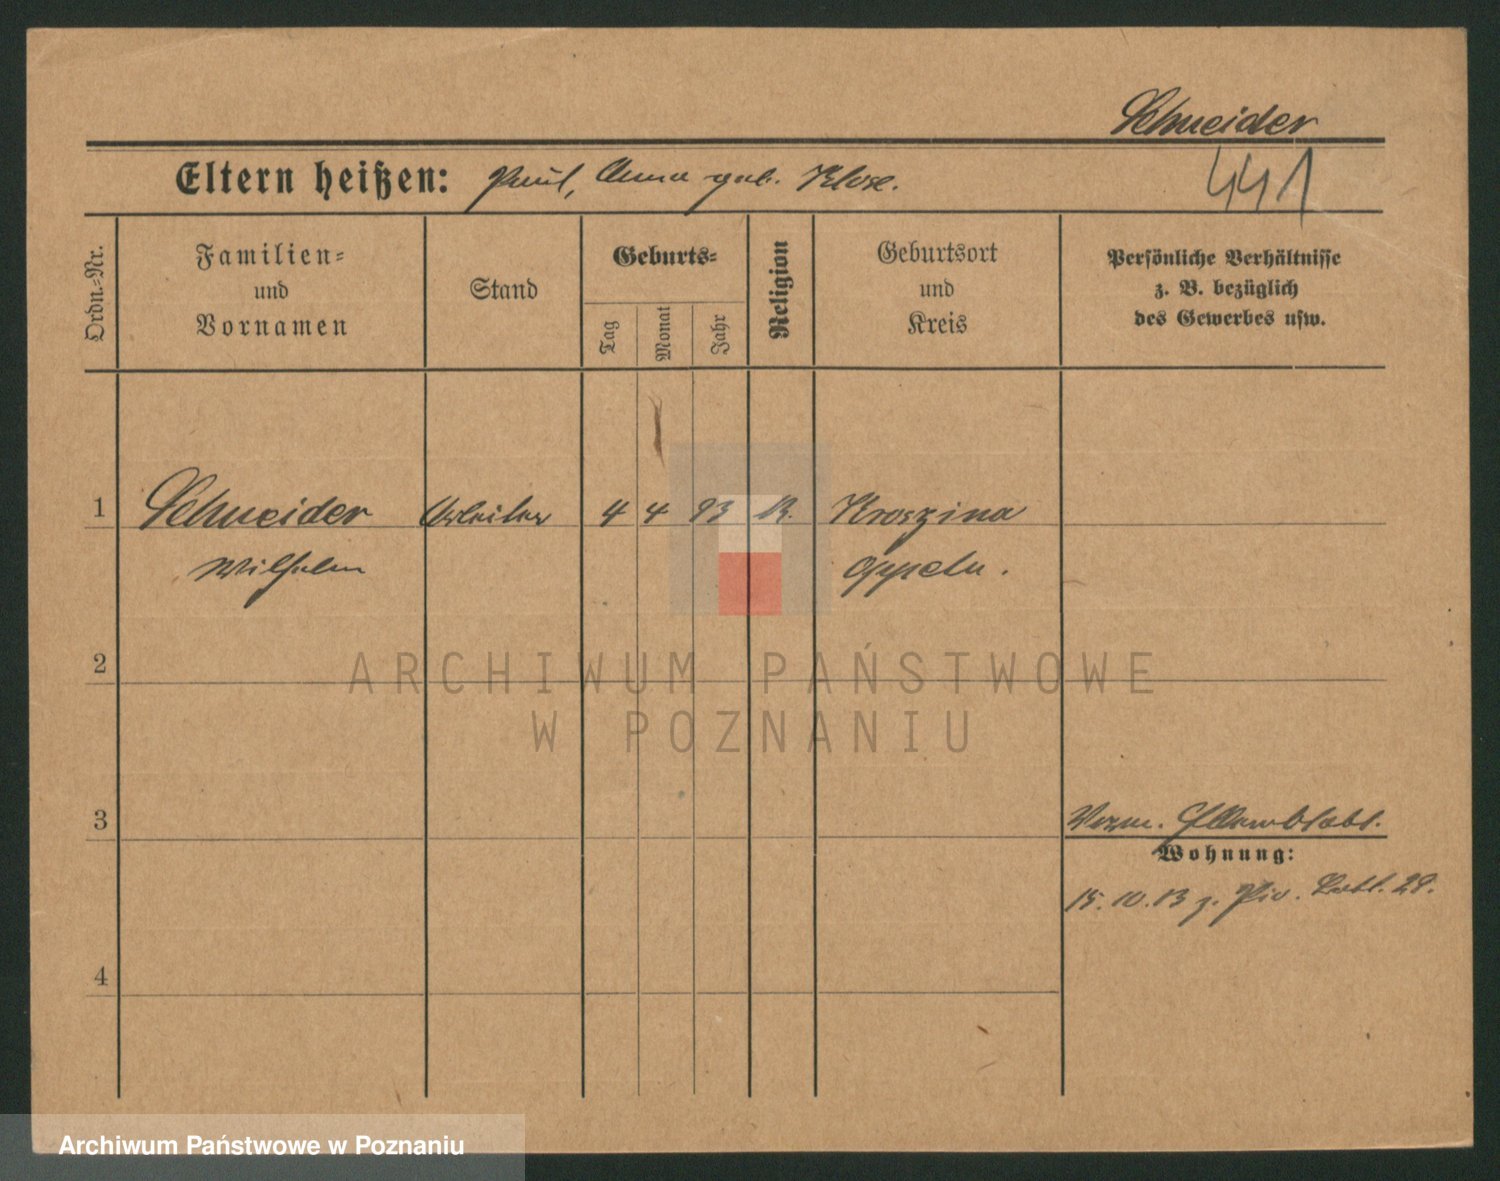 Schneider
Eltern heißen: Paul, Anna geb. Klose.
441
Ordn.-Nr.
Familien-
und
Vornamen
Stand
Geburts-
Tag
Monat
Jahr
Religion
Geburtsort
und
Kreis
Persönliche Verhältnisse
z. B. bezüglich
des Gewerbes usw.
1
Schneider Arbeiter 4 4 93 K. Kroszina
Wilhelm Oppeln.
2
ARCHIWUM PAŃSTWOWE
W POZNANIU
3
Wohnung:
15.10.13 z.
4
Archiwum Państwowe w Poznaniu